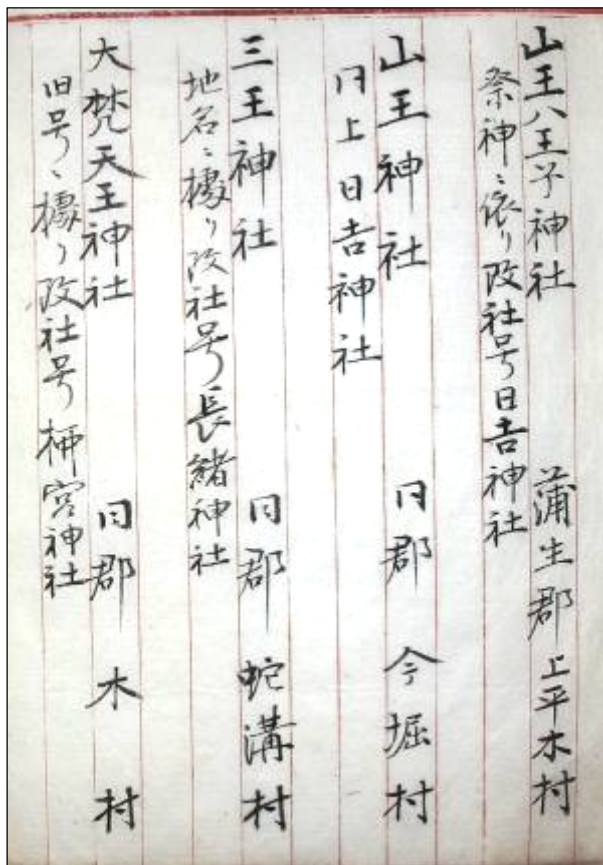 山王八王子神社 蒲生郡上平木村
祭神ニ依リ改社号日吉神社
山王神社 同郡 今堀村
同上日吉神社
三王神社 同郡 蛇溝村
地名ニ據リ改社号長緒神社
大梵天王神社 同郡 木村
旧号ニ據リ改社号柵宮神社